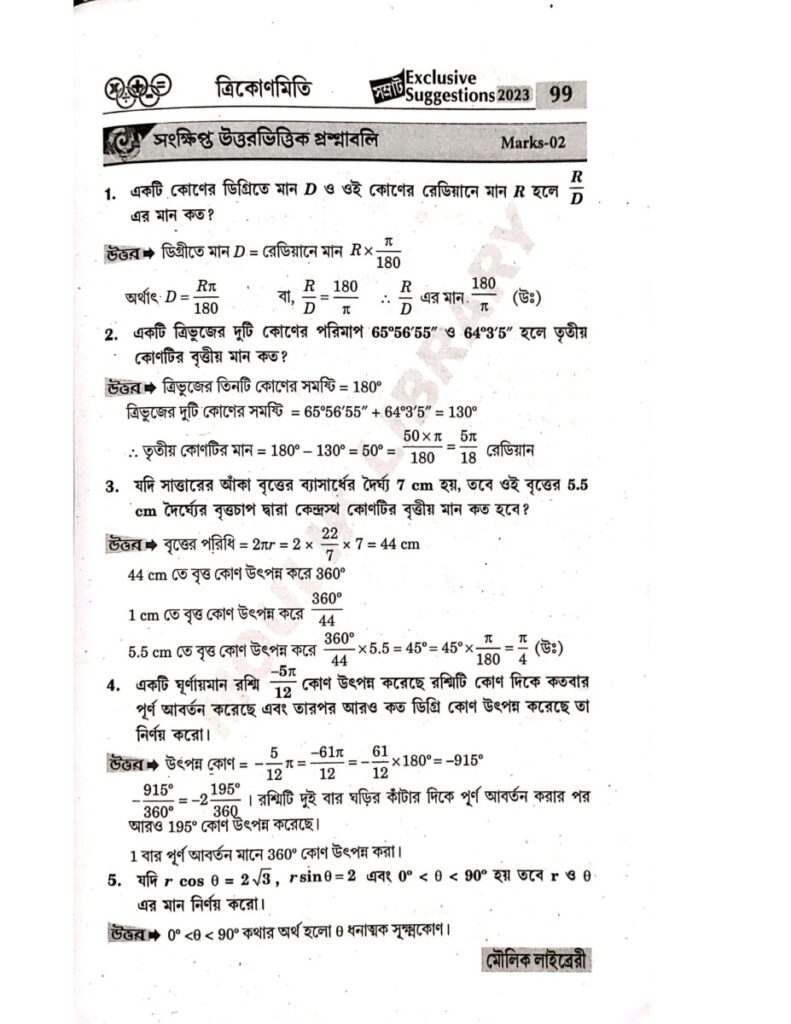 ত্রিকোণমিতি সম্রাট Exclusive Suggestions 2023 99
সংক্ষিপ্ত উত্তরভিত্তিক প্রশ্নাবলি Marks-02
1. একটি কোণের ডিগ্রিতে মান D ও ওই কোণের রেডিয়ানে মান R হলে R/D
এর মান কত?
উত্তর ➡ ডিগ্রীতে মান D = রেডিয়ানে মান R × π/180
অর্থাৎ D = Rπ/180 বা, R/D = 180/π ∴ R/D এর মান 180/π (উঃ)
2. একটি ত্রিভুজের দুটি কোণের পরিমাপ 65°56′55″ ও 64°3′5″ হলে তৃতীয়
কোণটির বৃত্তীয় মান কত?
উত্তর ➡ ত্রিভুজের তিনটি কোণের সমষ্টি = 180°
ত্রিভুজের দুটি কোণের সমষ্টি = 65°56′55″ + 64°3′5″ = 130°
∴ তৃতীয় কোণটির মান = 180° – 130° = 50° = 50×π/180 = 5π/18 রেডিয়ান
3. যদি সাত্তারের আঁকা বৃত্তের ব্যাসার্ধের দৈর্ঘ্য 7 cm হয়, তবে ওই বৃত্তের 5.5
cm দৈর্ঘ্যের বৃত্তচাপ দ্বারা কেন্দ্রস্থ কোণটির বৃত্তীয় মান কত হবে?
উত্তর ➡ বৃত্তের পরিধি = 2πr = 2 × 22/7 × 7 = 44 cm
44 cm তে বৃত্ত কোণ উৎপন্ন করে 360°
1 cm তে বৃত্ত কোণ উৎপন্ন করে 360°/44
5.5 cm তে বৃত্ত কোণ উৎপন্ন করে 360°/44 × 5.5 = 45° = 45° × π/180 = π/4 (উঃ)
4. একটি ঘূর্ণায়মান রশ্মি –5π/12 কোণ উৎপন্ন করেছে রশ্মিটি কোণ দিকে কতবার
পূর্ণ আবর্তন করেছে এবং তারপর আরও কত ডিগ্রি কোণ উৎপন্ন করেছে তা
নির্ণয় করো।
উত্তর ➡ উৎপন্ন কোণ = –5/12 π = –61π/12 = –61/12 × 180° = –915°
–915°/360° = –2 195°/360 । রশ্মিটি দুই বার ঘড়ির কাঁটার দিকে পূর্ণ আবর্তন করার পর
আরও 195° কোণ উৎপন্ন করেছে।
1 বার পূর্ণ আবর্তন মানে 360° কোণ উৎপন্ন করা।
5. যদি r cos θ = 2√3, r sinθ = 2 এবং 0° < θ < 90° হয় তবে r ও θ
এর মান নির্ণয় করো।
উত্তর ➡ 0° <θ < 90° কথার অর্থ হলো θ ধনাত্মক সূক্ষ্মকোণ।
মৌলিক লাইব্রেরী
MOULIK LIBRARY